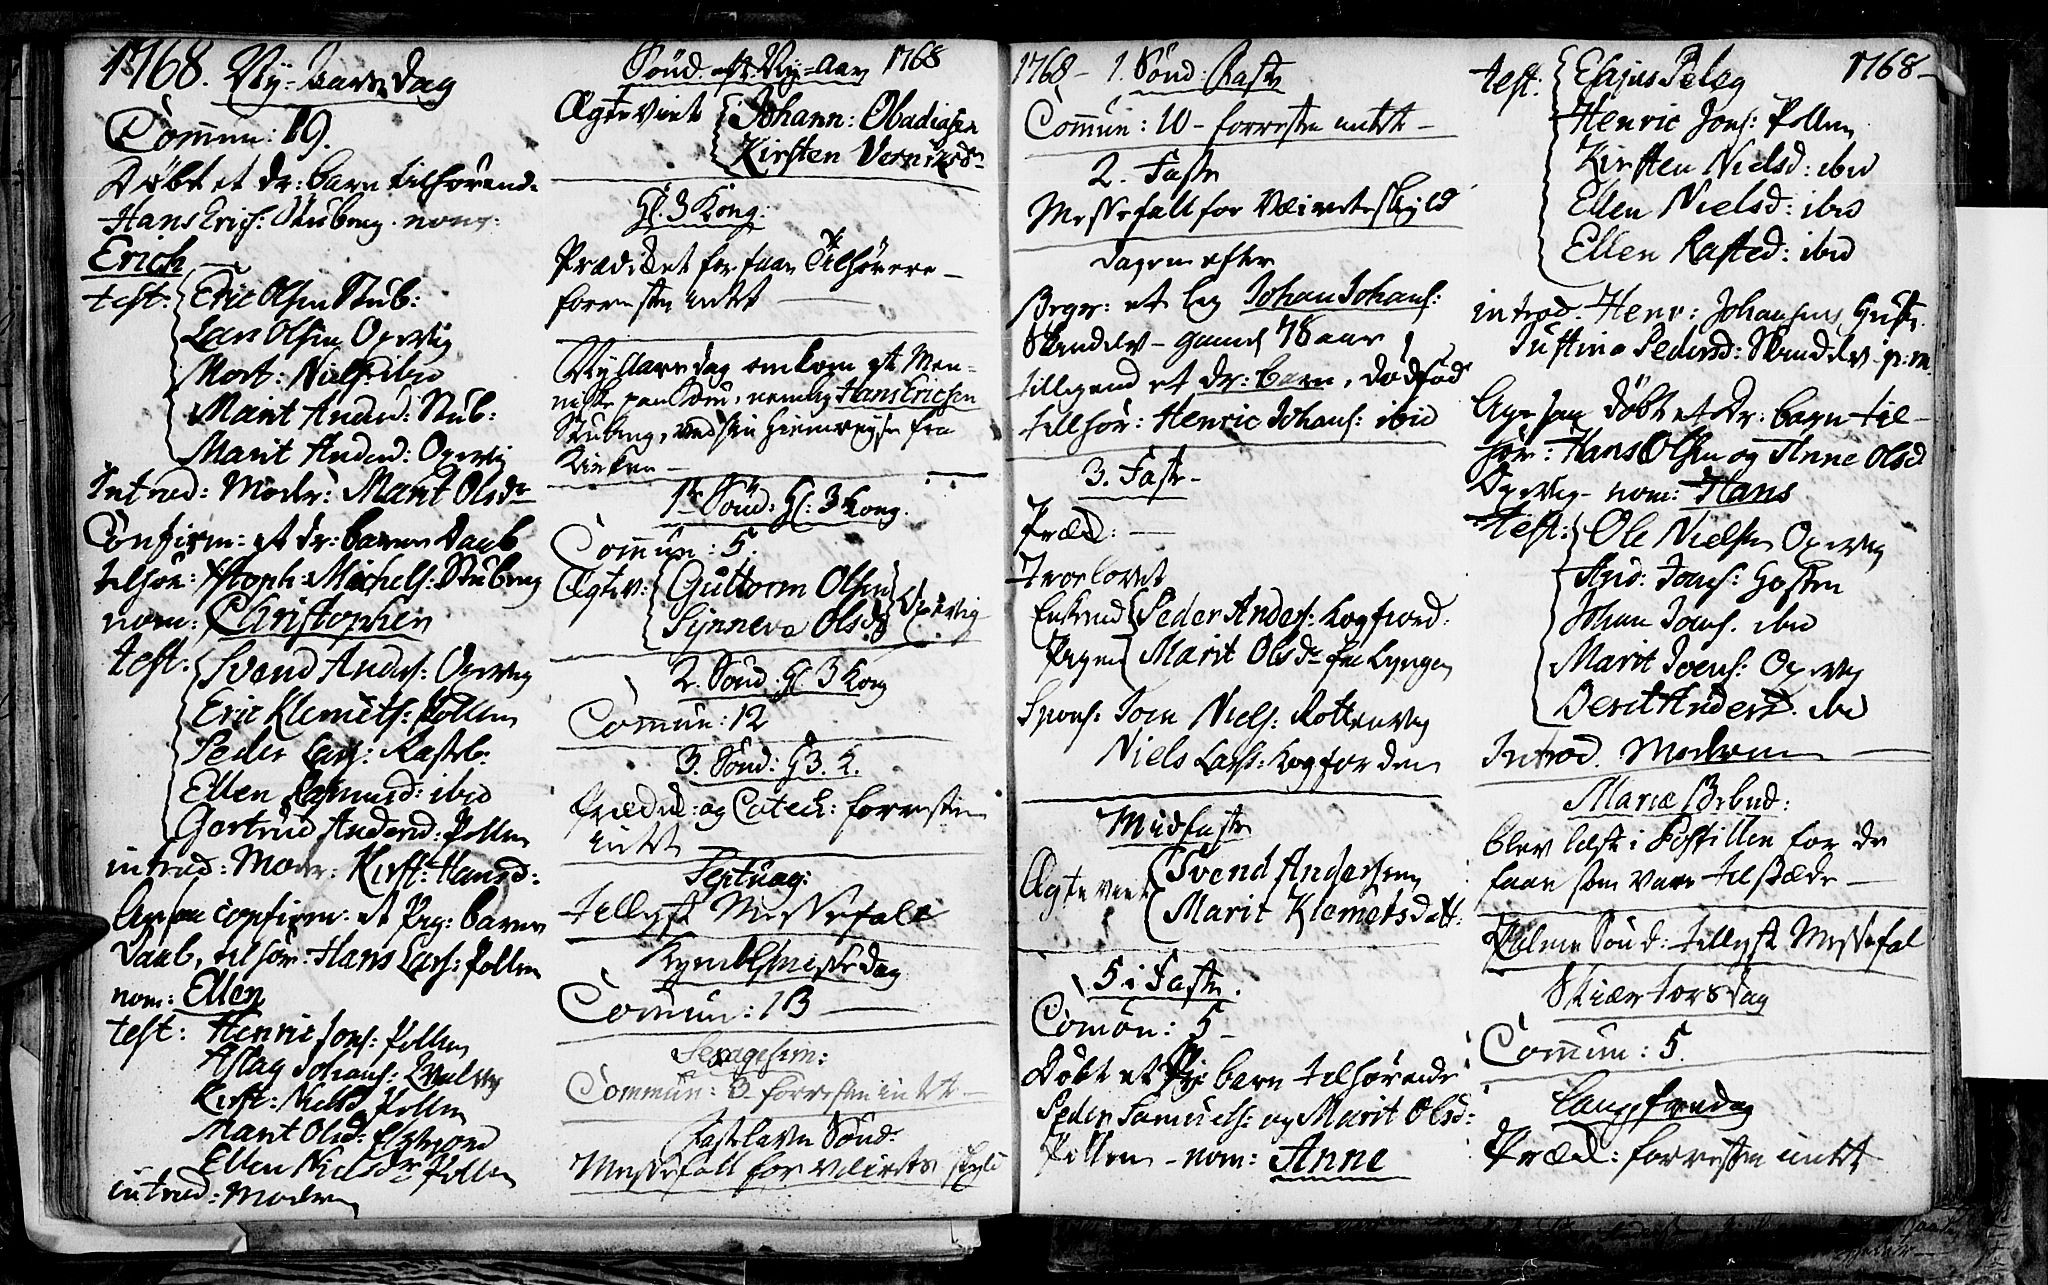 1768. Ny-Aarsdag
Comun: 19.
Döbt et dr: barn tilhörend.
Hans Erics: Stubeng. nom:
Erich
test: Eric Olsen Stub:
Lars Olsen Opevig
Mort: Niels: ibid
Marit Anders: Stub:
Marit Anders: Opevig
Introd: Moder: Marit Olsdr
Confirm: et dr: barns Daab
tilhör: Xstoph: Michels: Stubeng
nom: Christopher
test: Svend Anders: Opevig
Eric Klemets: Pollen
Peder Lars: Rasteb:
Ellen Rasmusd: ibid
Gertrud Andersd: Pollen
introd: Moder: Kirst: Hansd:
Ogsaa confirm: et Pig: barns
Daab, tilhör: Hans Lars: Pollen
nom: Ellen
test: Henric Jons: Pollen
Aslag Johans:
Kirst: Nielsd Pollen
Marit Olsd:
Ellen Nielsdr Pollen
introd: Modren
Sönd. eft. Ny-Aar 1768
Ægteviet Johann: Obadiasen
Kirsten
H. 3 Kong:
Prædiket for faae Tilhörere -
forresten intet
Ny Aarsdag omkom et Men-
niske paa Söen, nemlig Hans Ericsen
Stubeng, ved sin Hiemreyse fra
Kirken -
1te Sönd: H: 3 Kong.
Comun: 5.
Ægtev: Guttorm Olsen
Synneve Olsdr Opevig
2. Sönd. H. 3 Kong
Comun: 12
3. Sönd: H 3. K.
Prædik: og Catech: forresten
intet
Septuag:
tillyst Messefald
Kyndelsmissedag
Comun: 13
Sexagesim:
Commun: 3. forresten intet -
Fastelavns Sönd:
Messefald for Veirets skyld
1768 - 1. Sönd: Faste
Comun: 10 - forresten intet -
2. Faste
Messefald for Veirets skyld
Dagen efter
Begr: et lig Johan Johans:
Skandelv - gamel 78 aar
tilligemed et dr: barn, dödföd
tilhör: Henric Johans: ibid
3. Faste -
Præd:
Trolovet
Enkemd Peder Anders: Kogfiord.
Pigen Marit Olsdr fra Lyngen
Spons: Joen Niels: Rottenvig
Niels Lars: Kogfiorden
Midfaste
Ægteviet Svend Andersen
Marit Klemetsdatt:
5 i Faste.
Comun: 5
Döbt et Pige barn tilhörende
Peder Samuels: og Marit Olsd:
Pollen - nom: Anne
1768 -
test. Esajas Pelag
Henric Jons: Pollen
Kirsten Nielsd: ibid
Ellen Nielsd: ibid
Ellen Rasted: ibid
introd. Henr: Johansens Hustr.
Justina Pedersd: Skandelv p: m.
Ogsaa döbt et Dr: barn til-
hör: Hans Olsen og Anne Olsd
Opevig - nom: Hans
test: Ole Nielsen Opevig
And: Joens: Hosten
Johan Joens. ibid
Marit Joens: Opevig
Berit Andersd. ibid
Introd. Modren
Mariæ Bebud:
blev læst i Postillen for de
faae som vare tilstæde
Palme Sönd: tillyst Messefal
Skiær torsdag
Comun: 5.
Langfredag
Præd: forresten intet